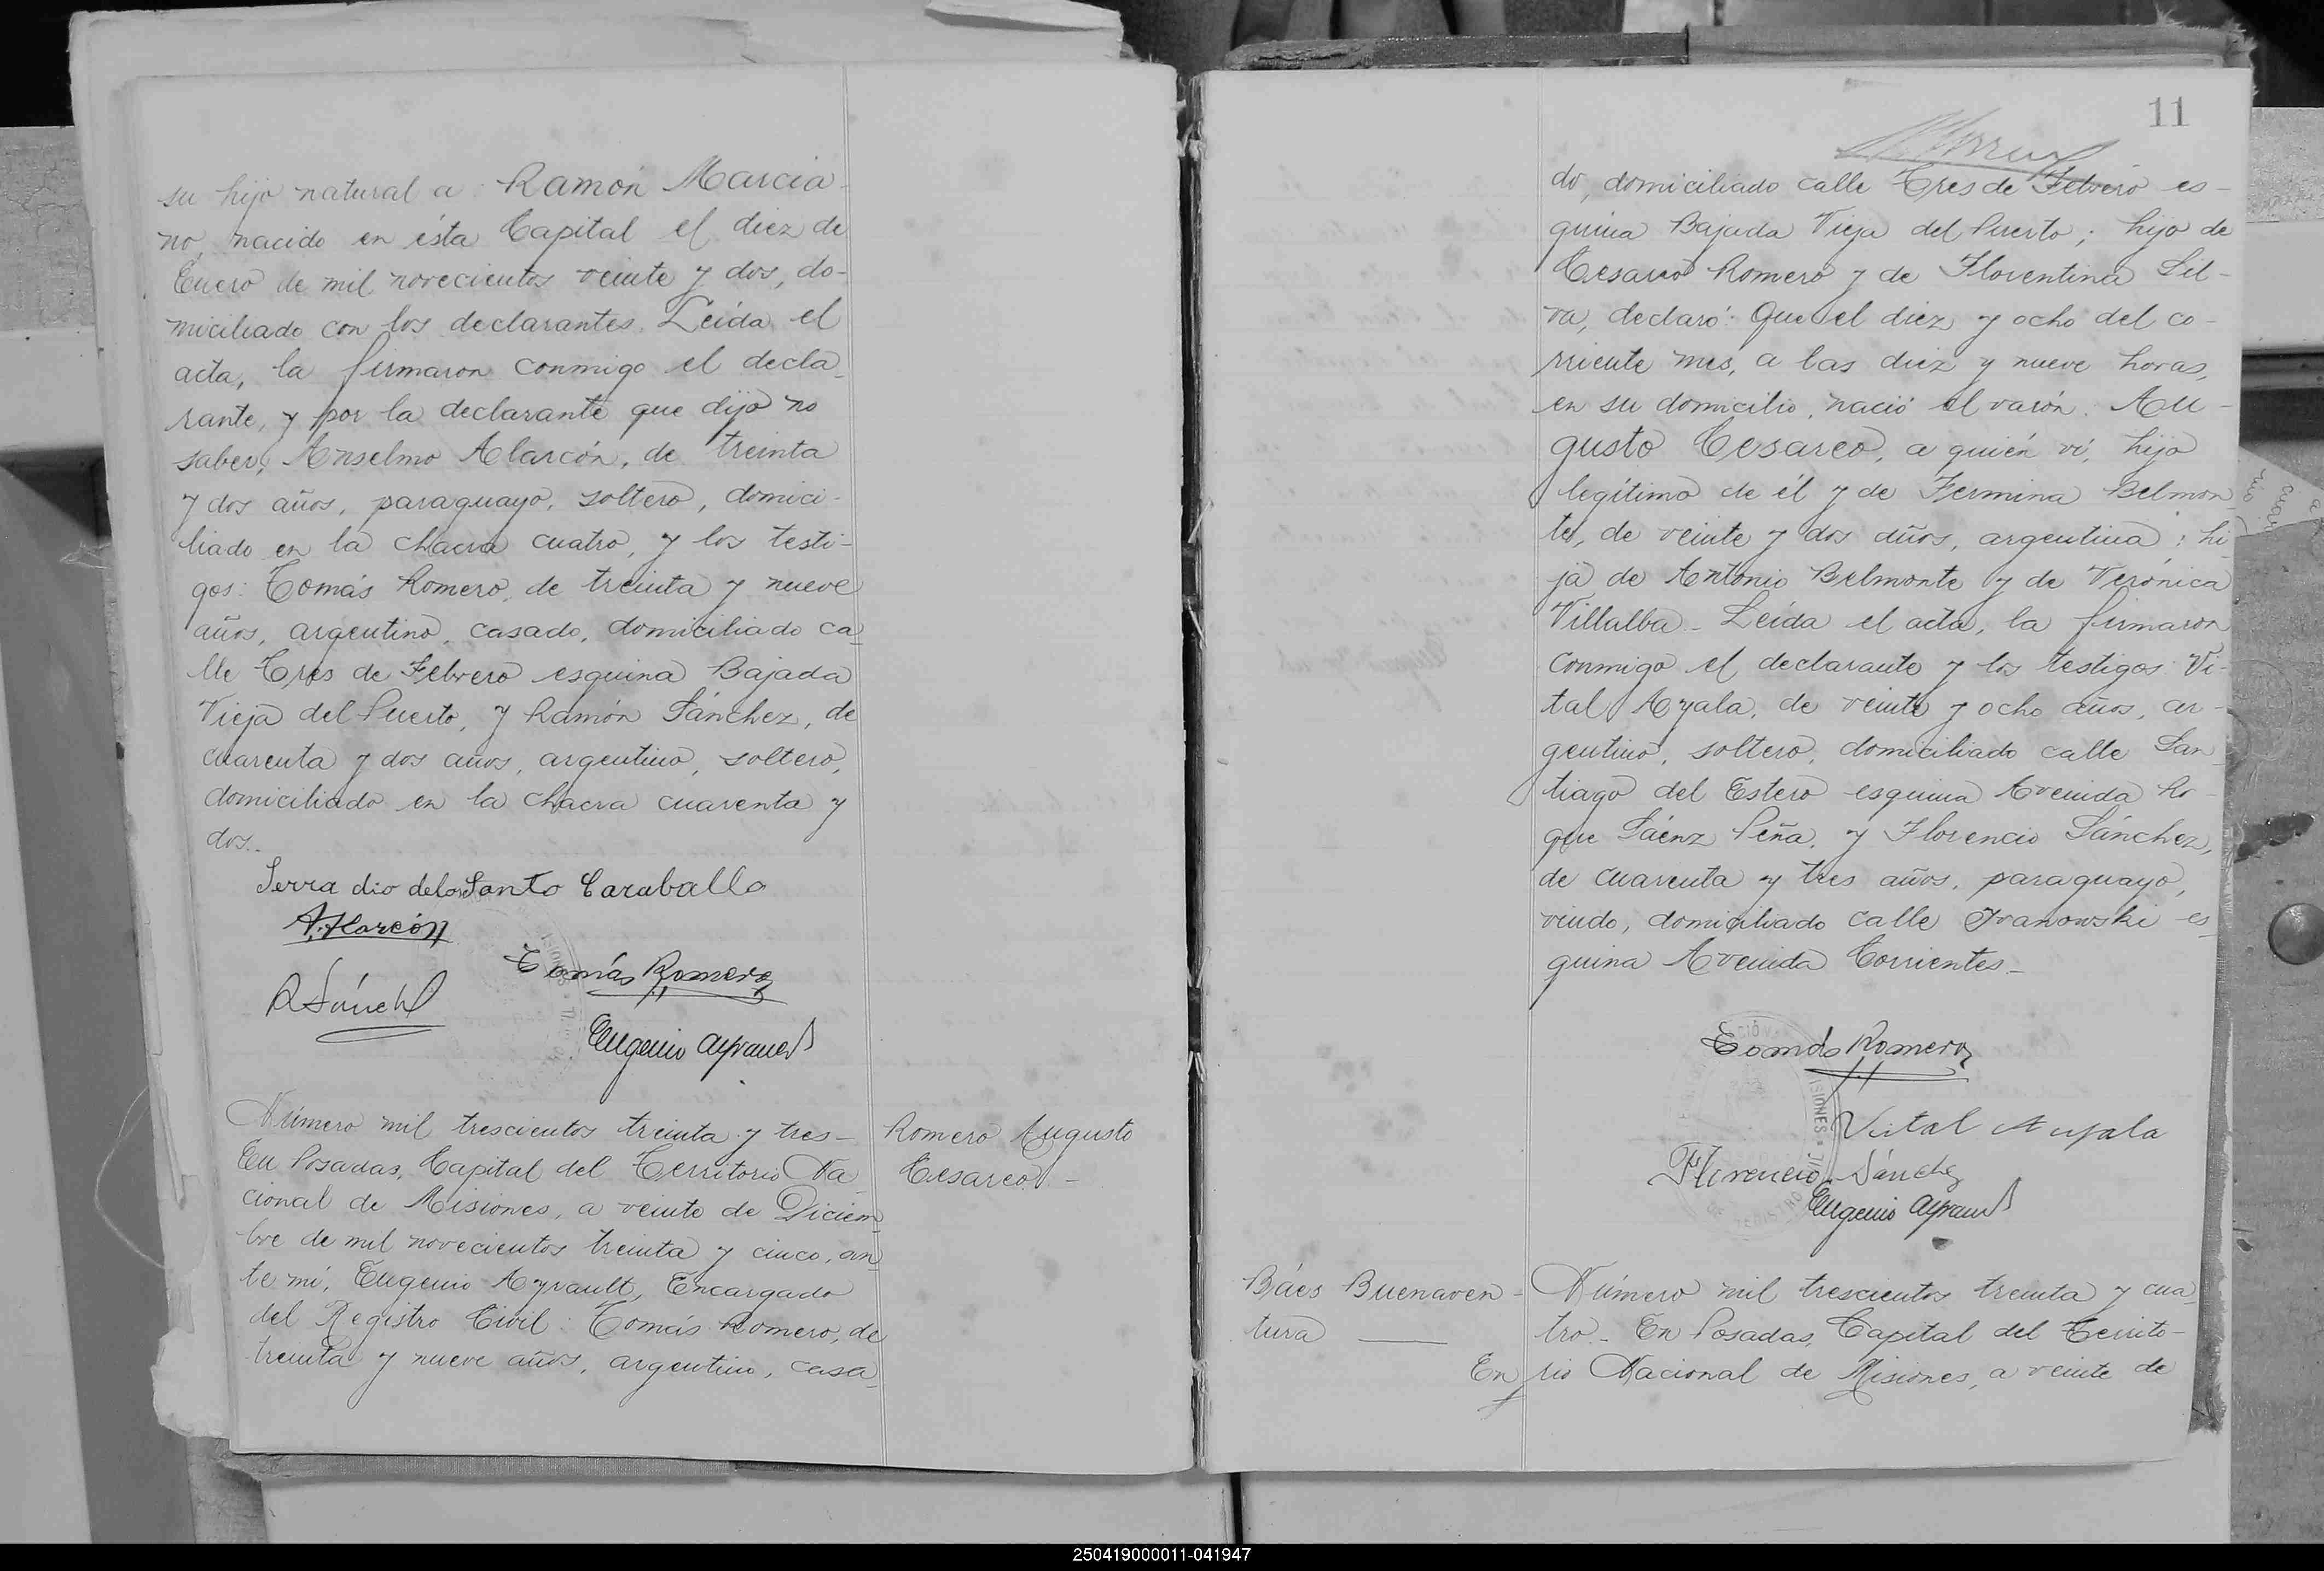 su hijo natural a: Ramón Marcia-
no, nacido en ésta Capital el diez de
Enero de mil novecientos veinte y dos, do-
miciliado con los declarantes. Leída el
acta, la firmaron conmigo el decla-
rante, y por la declarante que dijo no
saber, Anselmo Alarcón, de treinta
y dos años, paraguayo, soltero, domici-
liado en la chacra cuatro, y los testi-
gos: Tomás Romero, de treinta y nueve
años, argentino, casado, domiciliado ca-
lle Tres de Febrero esquina Bajada
Vieja del Puerto, y Ramón Sánchez, de
cuarenta y dos años, argentino, soltero,
domiciliado en la chacra cuarenta y
dos.-
Serra dio delos Santo Caraballo
A. Alarcón
Tomás Romero
R Sánch
Eugenio Ayrault
Número mil trescientos treinta y tres-
En Posadas, Capital del Territorio Na-
cional de Misiones, a veinte de Diciem-
bre de mil novecientos treinta y cinco, an-
te mí, Eugenio Ayrault, Encargado
del Registro Civil: Tomás Romero, de
treinta y nueve años, argentino, casa-
Romero Augusto
Cesareo.-
11
do, domiciliado calle Tres de Febrero es-
quina Bajada Vieja del Puerto; hijo de
Cesareo Romero y de Florentina Sil-
va, declaró: Que el diez y ocho del co-
rriente mes, a las diez y nueve horas,
en su domicilio, nació el varón: Au-
gusto Cesareo, a quién ví, hijo
legítimo de él y de Fermina Belmon-
te, de veinte y dos años, argentina; hi-
ja de Antonio Belmonte y de Verónica
Villalba.- Leída el acta, la firmaron
conmigo el declarante y los testigos: Vi-
tal Ayala, de veinte y ocho años, ar-
gentino, soltero, domiciliado calle San-
tiago del Estero esquina Avenida Ro-
que Sáenz Peña, y Florencio Sánchez,
de cuarenta y tres años, paraguayo,
viudo, domiciliado calle Ivanowski es-
quina Avenida Corrientes.-
Tomás Romero
Vital Ayala
Florencio Sánchez
Eugenio Ayrault
Báes Buenaven-
tura
Número mil trescientos treinta y cua-
tro.- En Posadas, Capital del Territo-
En rio Nacional de Misiones, a veinte de
250419000011-041947